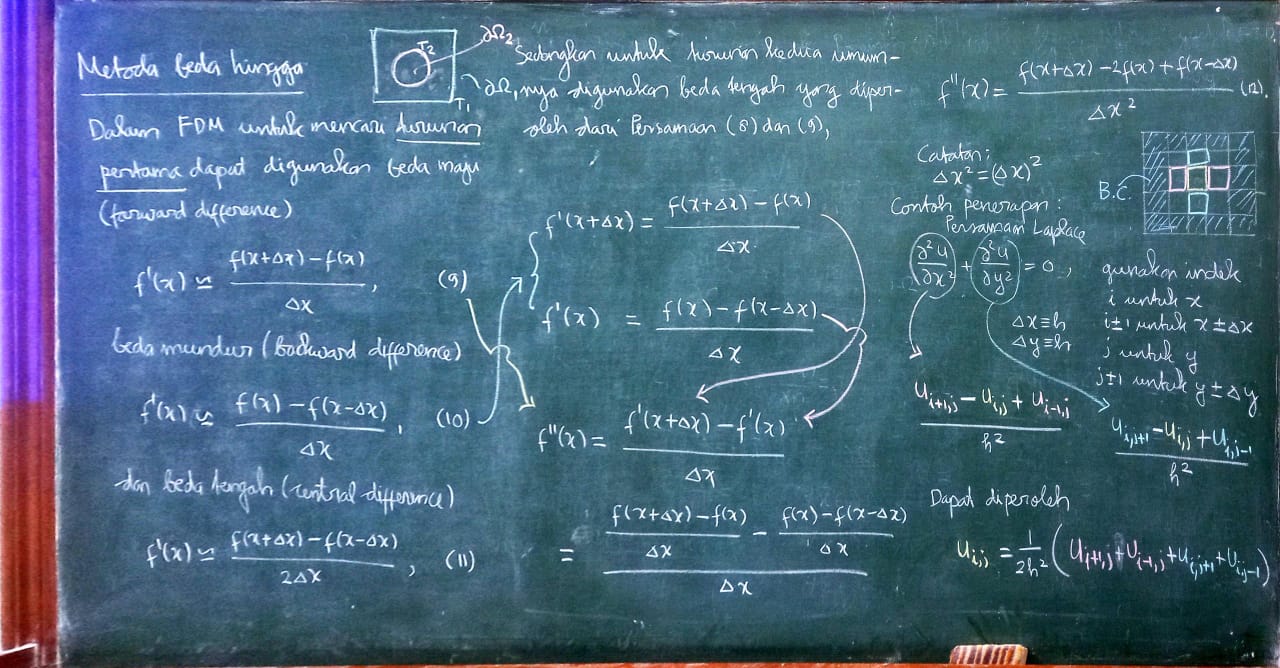 Metoda beda hingga
T2
∂Ω2
∂Ω1
T1
Dalam FDM untuk mencari turunan
pertama dapat digunakan beda maju
(forward difference)
f'(x) ≃ (f(x+Δx) − f(x)) / Δx, (9)
beda mundur (backward difference)
f'(x) ≃ (f(x) − f(x−Δx)) / Δx, (10)
dan beda tengah (central difference)
f'(x) ≃ (f(x+Δx) − f(x−Δx)) / 2Δx, (11)
Sedangkan untuk turunan kedua umum-
nya digunakan beda tengah yang diper-
oleh dari Persamaan (8) dan (9),
f'(x+Δx) = (f(x+Δx) − f(x)) / Δx
f'(x) = (f(x) − f(x−Δx)) / Δx
f''(x) = (f'(x+Δx) − f'(x)) / Δx
= ((f(x+Δx) − f(x)) / Δx − (f(x) − f(x−Δx)) / Δx) / Δx
f''(x) = (f(x+Δx) − 2f(x) + f(x−Δx)) / Δx² (12),
Catatan:
Δx² = (Δx)²
B.C.
Contoh penerapan:
Persamaan Laplace
∂²u/∂x² + ∂²u/∂y² = 0,
gunakan indek
i untuk x
i±1 untuk x±Δx
j untuk y
j±1 untuk y±Δy
Δx≡h
Δy≡h
(u_{i+1,j} − u_{i,j} + u_{i−1,j}) / h²
(u_{i,j+1} − u_{i,j} + u_{i,j−1}) / h²
Dapat diperoleh
u_{i,j} = 1/2h² (u_{i+1,j} + u_{i−1,j} + u_{i,j+1} + u_{i,j−1})